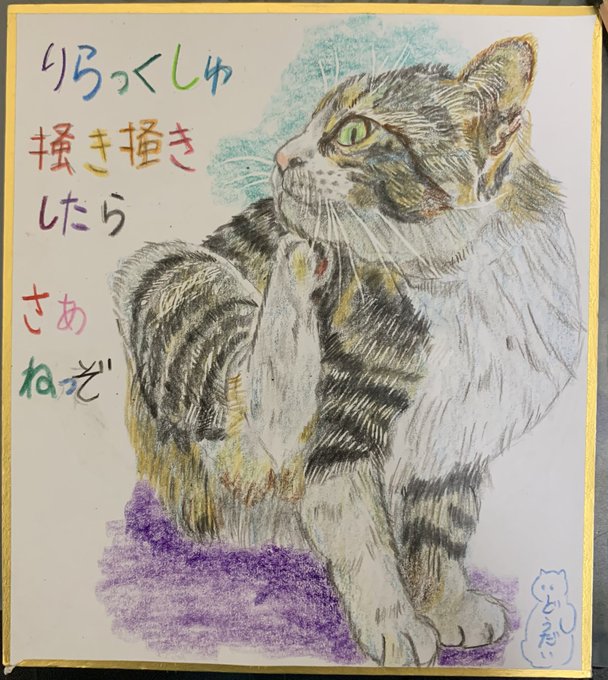 りらっくしゅ
掻き掻き
したら
さあ
ねっぞ
どうだい